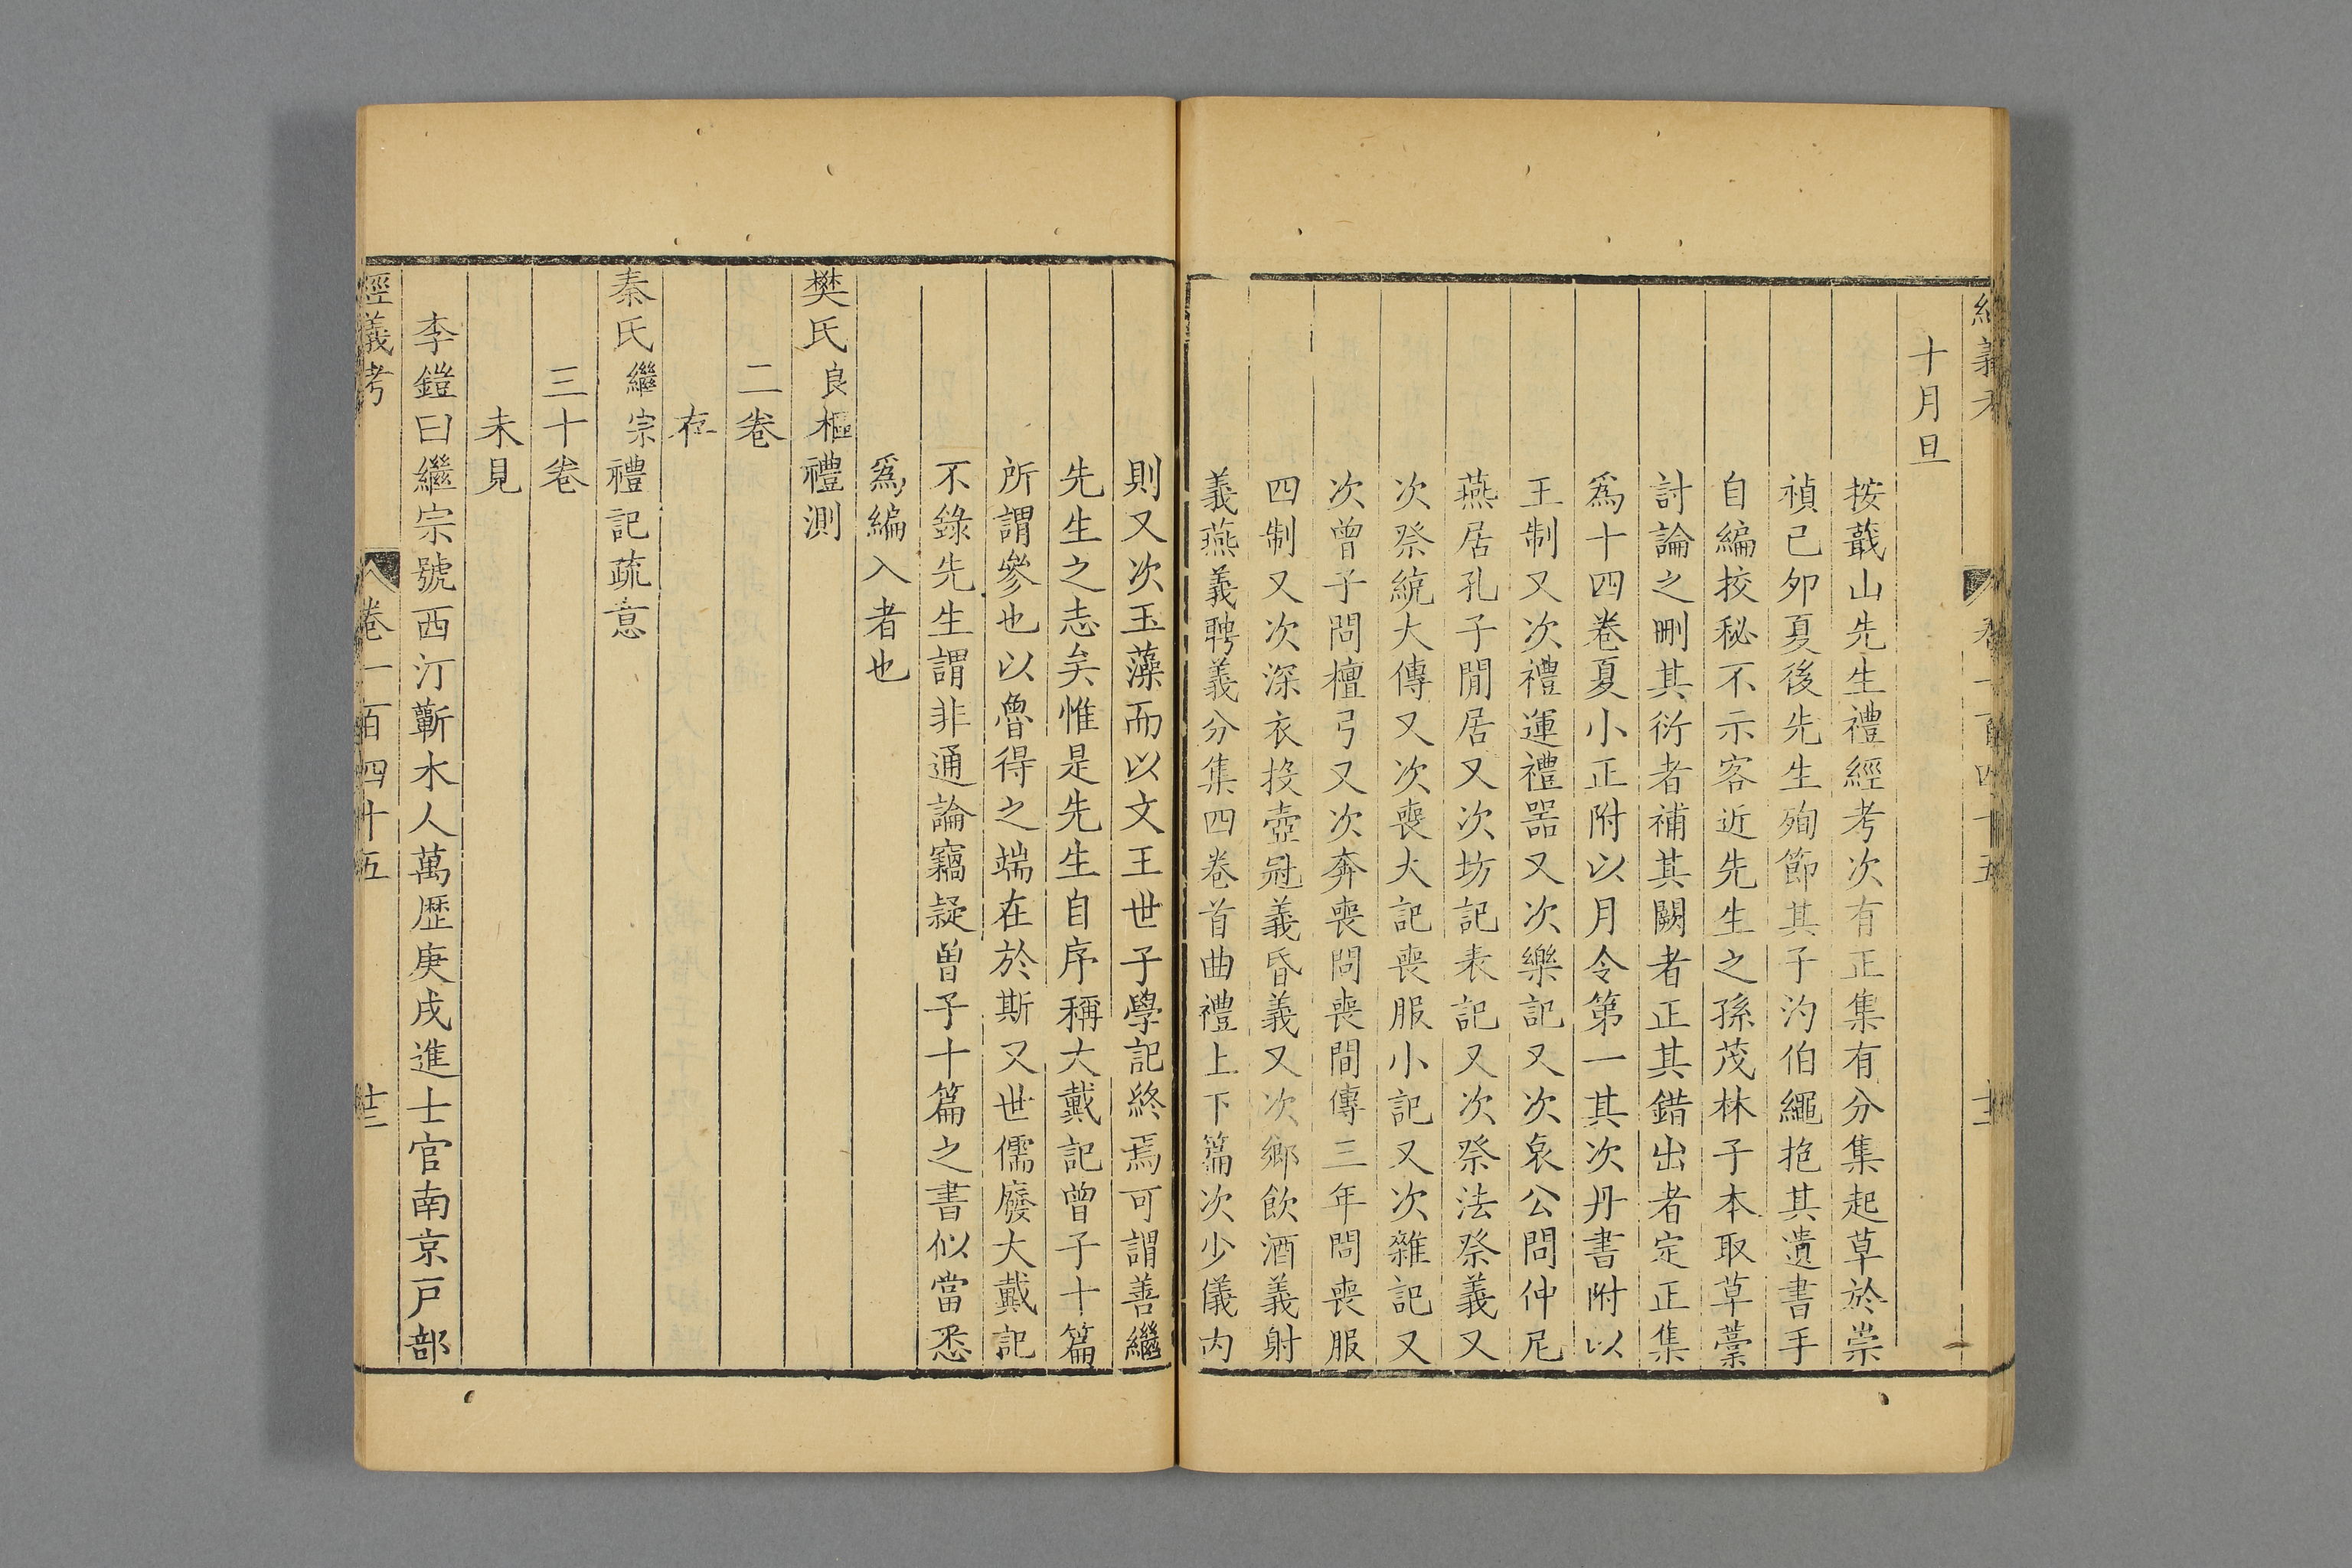 經義考 卷一百四十五 十二
十月旦
按蕺山先生禮經考次有正集有分集起草於崇
禎己夘夏後先生殉節其子汋伯繩抱其遺書手
自編挍秘不示客近先生之孫茂林子本取草藁
討論之刪其衍者補其闕者正其錯出者定正集
爲十四卷夏小正附以月令第一其次丹書附以
王制又次禮運禮器又次樂記又次哀公問仲尼
燕居孔子閒居又次坊記表記又次祭法祭義又
次祭統大傳又次喪大記喪服小記又次雜記又
次曾子問檀弓又次奔喪問喪間傳三年問喪服
四制又次深衣投壺冠義昏義又次鄉飲酒義射
義燕義聘義分集四卷首曲禮上下篇次少儀内
則又次玉藻而以文王世子學記終焉可謂善繼
先生之志矣惟是先生自序稱大戴記曾子十篇
所謂參也以魯得之端在於斯又世儒廢大戴記
不錄先生謂非通論竊疑曾子十篇之書似當悉
爲編入者也
樊氏良樞禮測
二卷
存
秦氏繼宗禮記疏意
三十卷
未見
李鎧曰繼宗號西汀蘄水人萬歴庚戌進士官南京戸部
經義考 卷一百四十五 十三